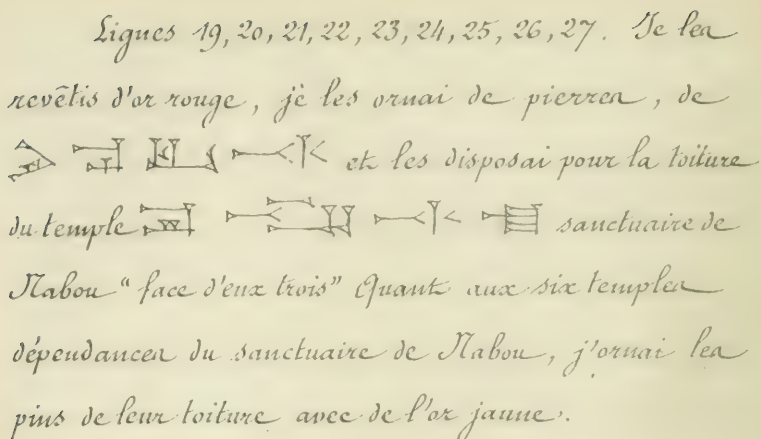 Lignes 19, 20, 21, 22, 23, 24, 25, 26, 27. Je les
revêtis d'or rouge, je les ornai de pierres, de
et les disposai pour la toiture
du temple sanctuaire de
Nabou "face d'eux trois" Quant aux six temples
dépendances du sanctuaire de Nabou, j'ornai les
pins de leur toiture avec de l'or jaune.